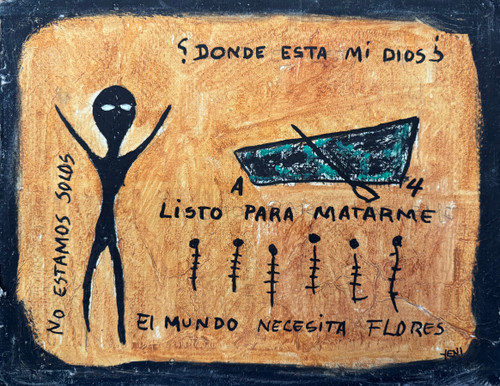 ¿DONDE ESTA MI DIOS?
NO ESTAMOS SOLOS
A 4
LISTO PARA MATARME
El MUNDO NECESITA FLORES